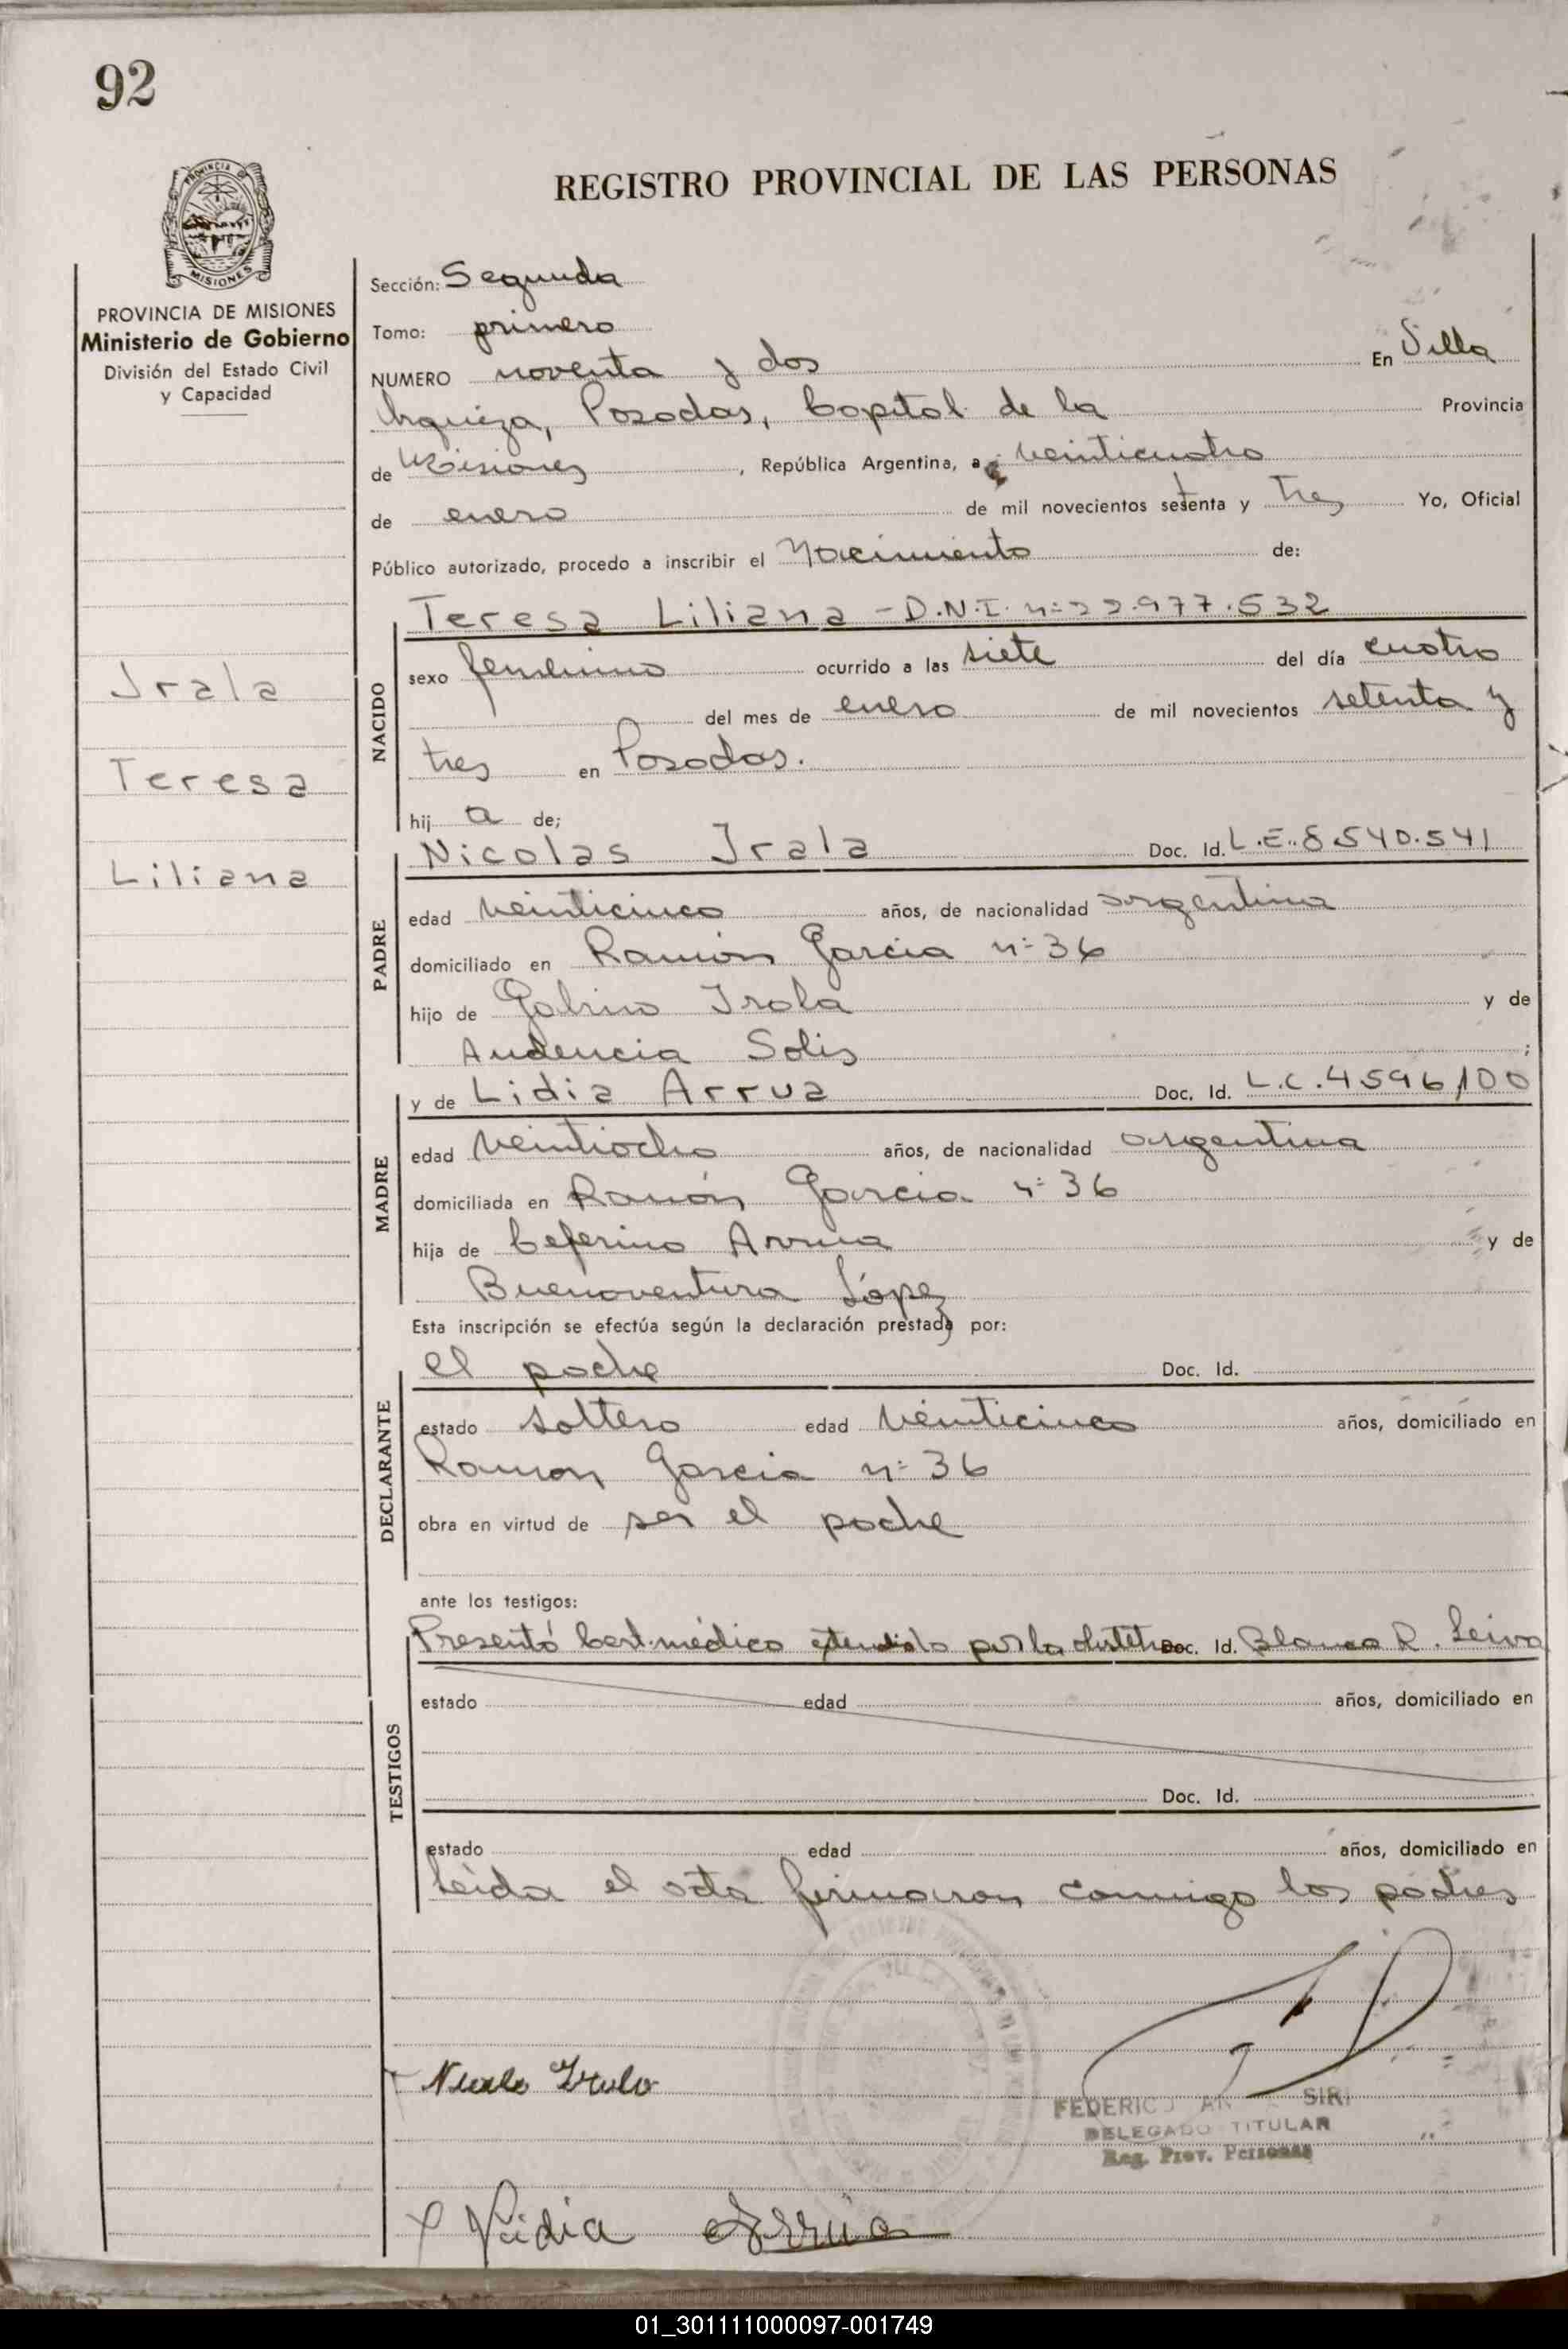 92
PROVINCIA DE MISIONES
REGISTRO PROVINCIAL DE LAS PERSONAS
PROVINCIA DE MISIONES
Ministerio de Gobierno
División del Estado Civil
y Capacidad
Irala
Teresa
Liliana
Sección: Segunda
Tomo: primero
NUMERO noventa y dos En Villa
Urquiza, Posadas, Capital de la Provincia
de Misiones, República Argentina, a veinticuatro
de enero de mil novecientos setenta y tres Yo, Oficial
Público autorizado, procedo a inscribir el Nacimiento de:
NACIDO
Teresa Liliana - D.N.I. nº 22.977.532
sexo femenino ocurrido a las siete del día cuatro
del mes de enero de mil novecientos setenta y
tres en Posadas.
hij a de;
PADRE
Nicolas Irala Doc. Id. L.E. 8.540.541
edad veinticinco años, de nacionalidad argentina
domiciliado en Ramón García nº 36
hijo de Gabino Irala y de
Audencia Solis ;
MADRE
y de Lidia Arrua Doc. Id. L.C. 4596100
edad veintiocho años, de nacionalidad argentina
domiciliada en Ramón García nº 36
hija de Ceferino Arrua y de
Buenaventura López
Esta inscripción se efectúa según la declaración prestada por:
DECLARANTE
el padre Doc. Id.
estado soltero edad veinticinco años, domiciliado en
Ramon Garcia nº 36
obra en virtud de ser el padre
ante los testigos:
TESTIGOS
Presentó Cert. médico extendido por la obstetra Doc. Id. Blanca R. Leiva
estado edad años, domiciliado en
Doc. Id.
estado edad años, domiciliado en
Leída el acta firmaron conmigo los padres
Irala
FEDERICO SIRI
DELEGADO TITULAR
Reg. Prov. Personas
Lidia Arrua
01_301111000097-001749